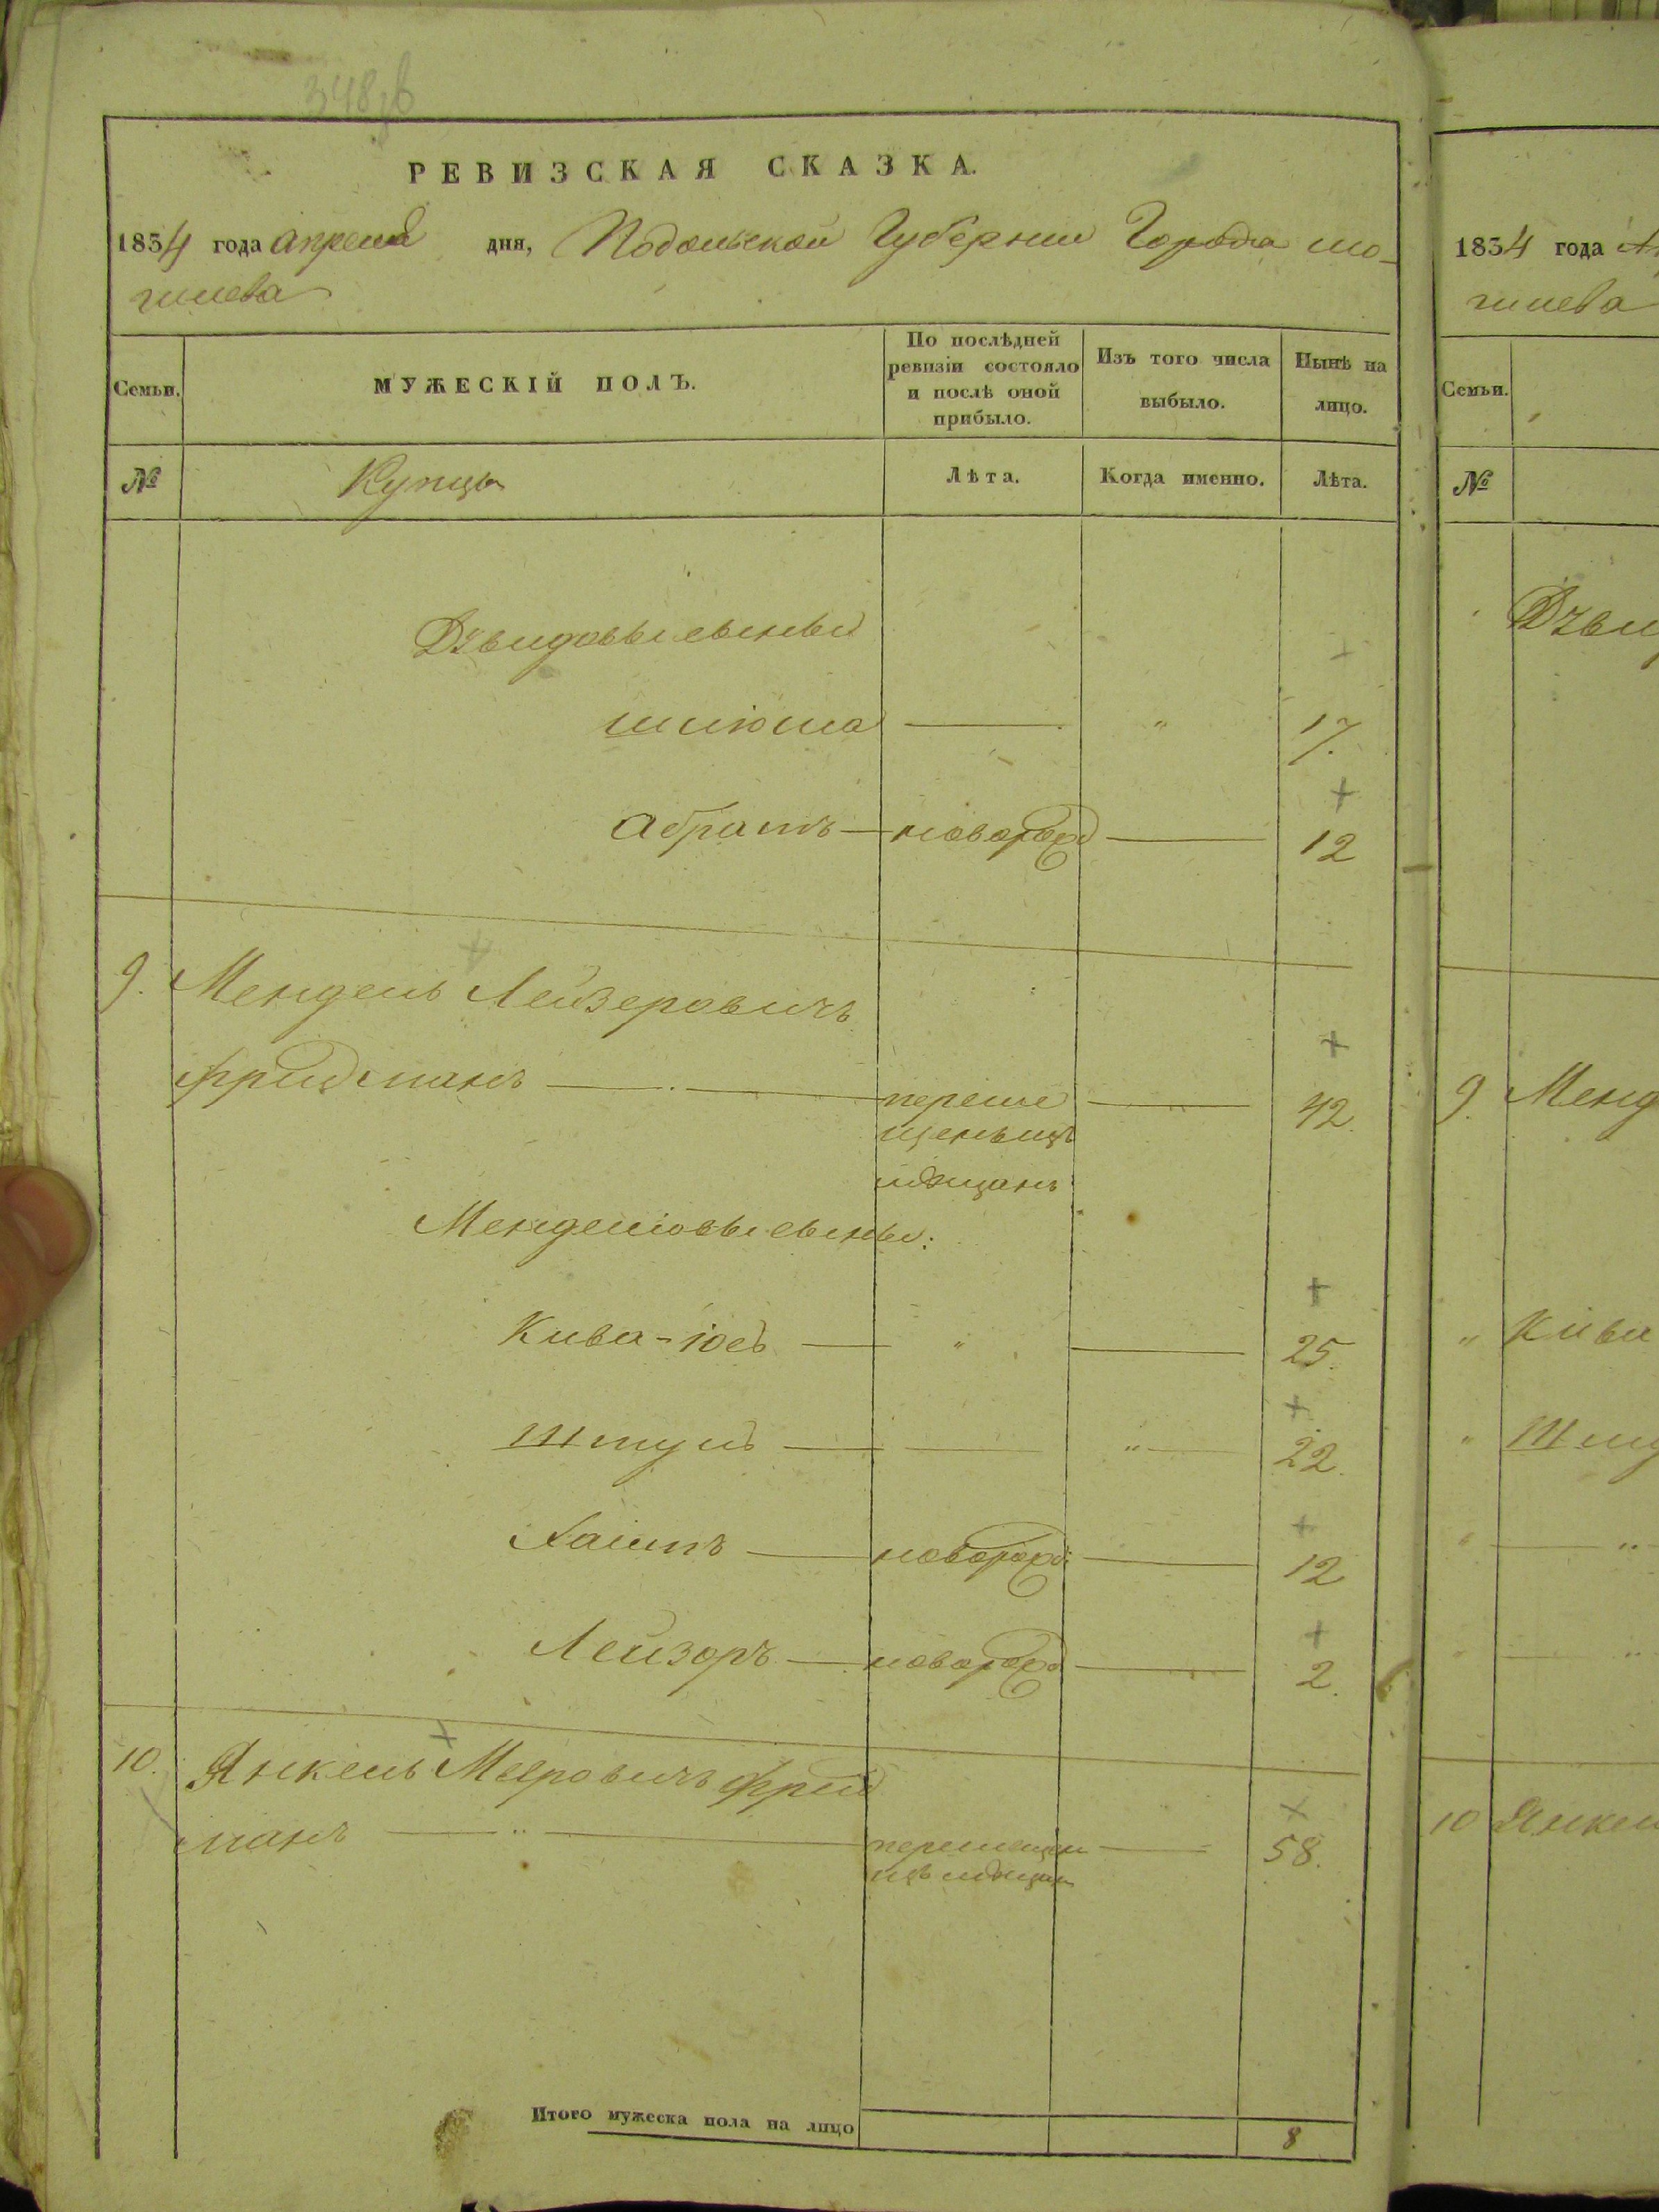 348 об
РЕВИЗСКАЯ СКАЗКА.
1834 года апреля дня, Подольской Губернии Города мо-
гилева
Семьи. МУЖЕСКІЙ ПОЛЪ. По послѣдней ревизіи состояло и послѣ оной прибыло. Изъ того числа выбыло. Нынѣ на лицо.
№ Купцы Лѣта. Когда именно. Лѣта.
сыновья
шлюма — " 17.
Абрамъ — новорожд — 12
9. Мендель Лейзеровичъ
Фридманъ — переме — 42.
щенъ изъ
мѣщанъ
Менделіовы сыновья:
Кива-Іосъ — " — 25.
Шмуль — " — 22.
Хаимъ — новорожд: — 12
Лейзоръ — новорожд — 2.
10. Янкель Меяровичъ Фрид
манъ — " — перемещен — 58.
изъ мѣщан
Итого мужеска пола на лицо 8
1834 года
гилева
Семьи.
№
9. Менд
" Кива
"
10 Янкел